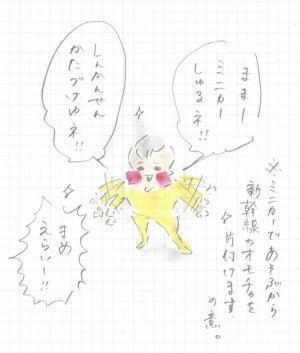 ままー
ミニカー
しゅるネ!!
しんかんせん
かたづけゆネ!!
まめ
えらいー!!
※ミニカーであそぶから
新幹線のオモチャを
片付けます
の意。